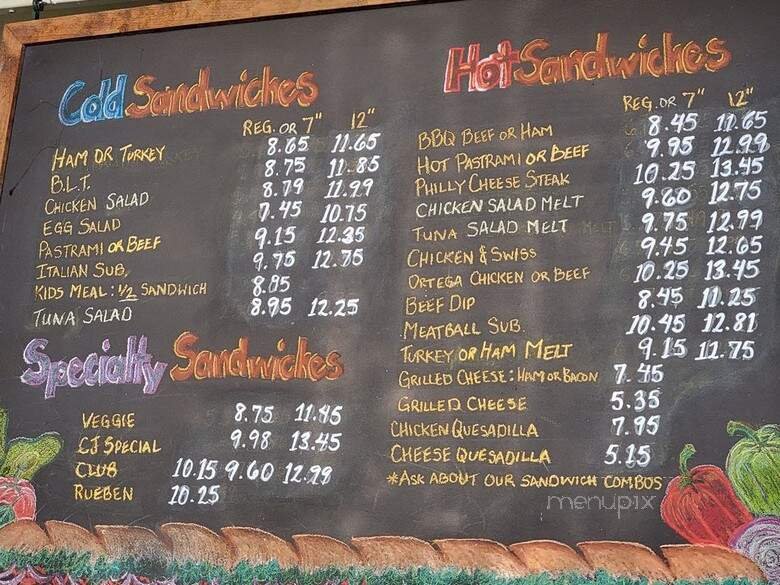 Cold Sandwiches
REG. OR 7" 12"
HAM OR TURKEY 8.65 11.65
B.L.T. 8.75 11.85
CHICKEN SALAD 8.79 11.99
EGG SALAD 7.45 10.75
PASTRAMI OR BEEF 9.15 12.35
ITALIAN SUB, 9.75 12.75
KIDS MEAL: 1/2 SANDWICH 8.85
TUNA SALAD 8.95 12.25
Specialty Sandwiches
VEGGIE 8.75 11.45
CJ SPECIAL 9.98 13.45
CLUB 10.15 9.60 12.99
RUEBEN 10.25
Hot Sandwiches
REG. OR 7" 12"
BBQ BEEF OR HAM 8.45 11.65
HOT PASTRAMI OR BEEF 9.95 12.99
PHILLY CHEESE STEAK 10.25 13.45
CHICKEN SALAD MELT 9.60 12.75
TUNA SALAD MELT 9.75 12.99
CHICKEN & SWISS 9.45 12.65
ORTEGA CHICKEN OR BEEF 10.25 13.45
BEEF DIP 8.45 11.25
MEATBALL SUB. 10.45 12.81
TURKEY OR HAM MELT 9.15 11.75
GRILLED CHEESE: HAM OR BACON 7.45
GRILLED CHEESE 5.35
CHICKEN QUESADILLA 7.95
CHEESE QUESADILLA 5.15
*ASK ABOUT OUR SANDWICH COMBOS
menupix